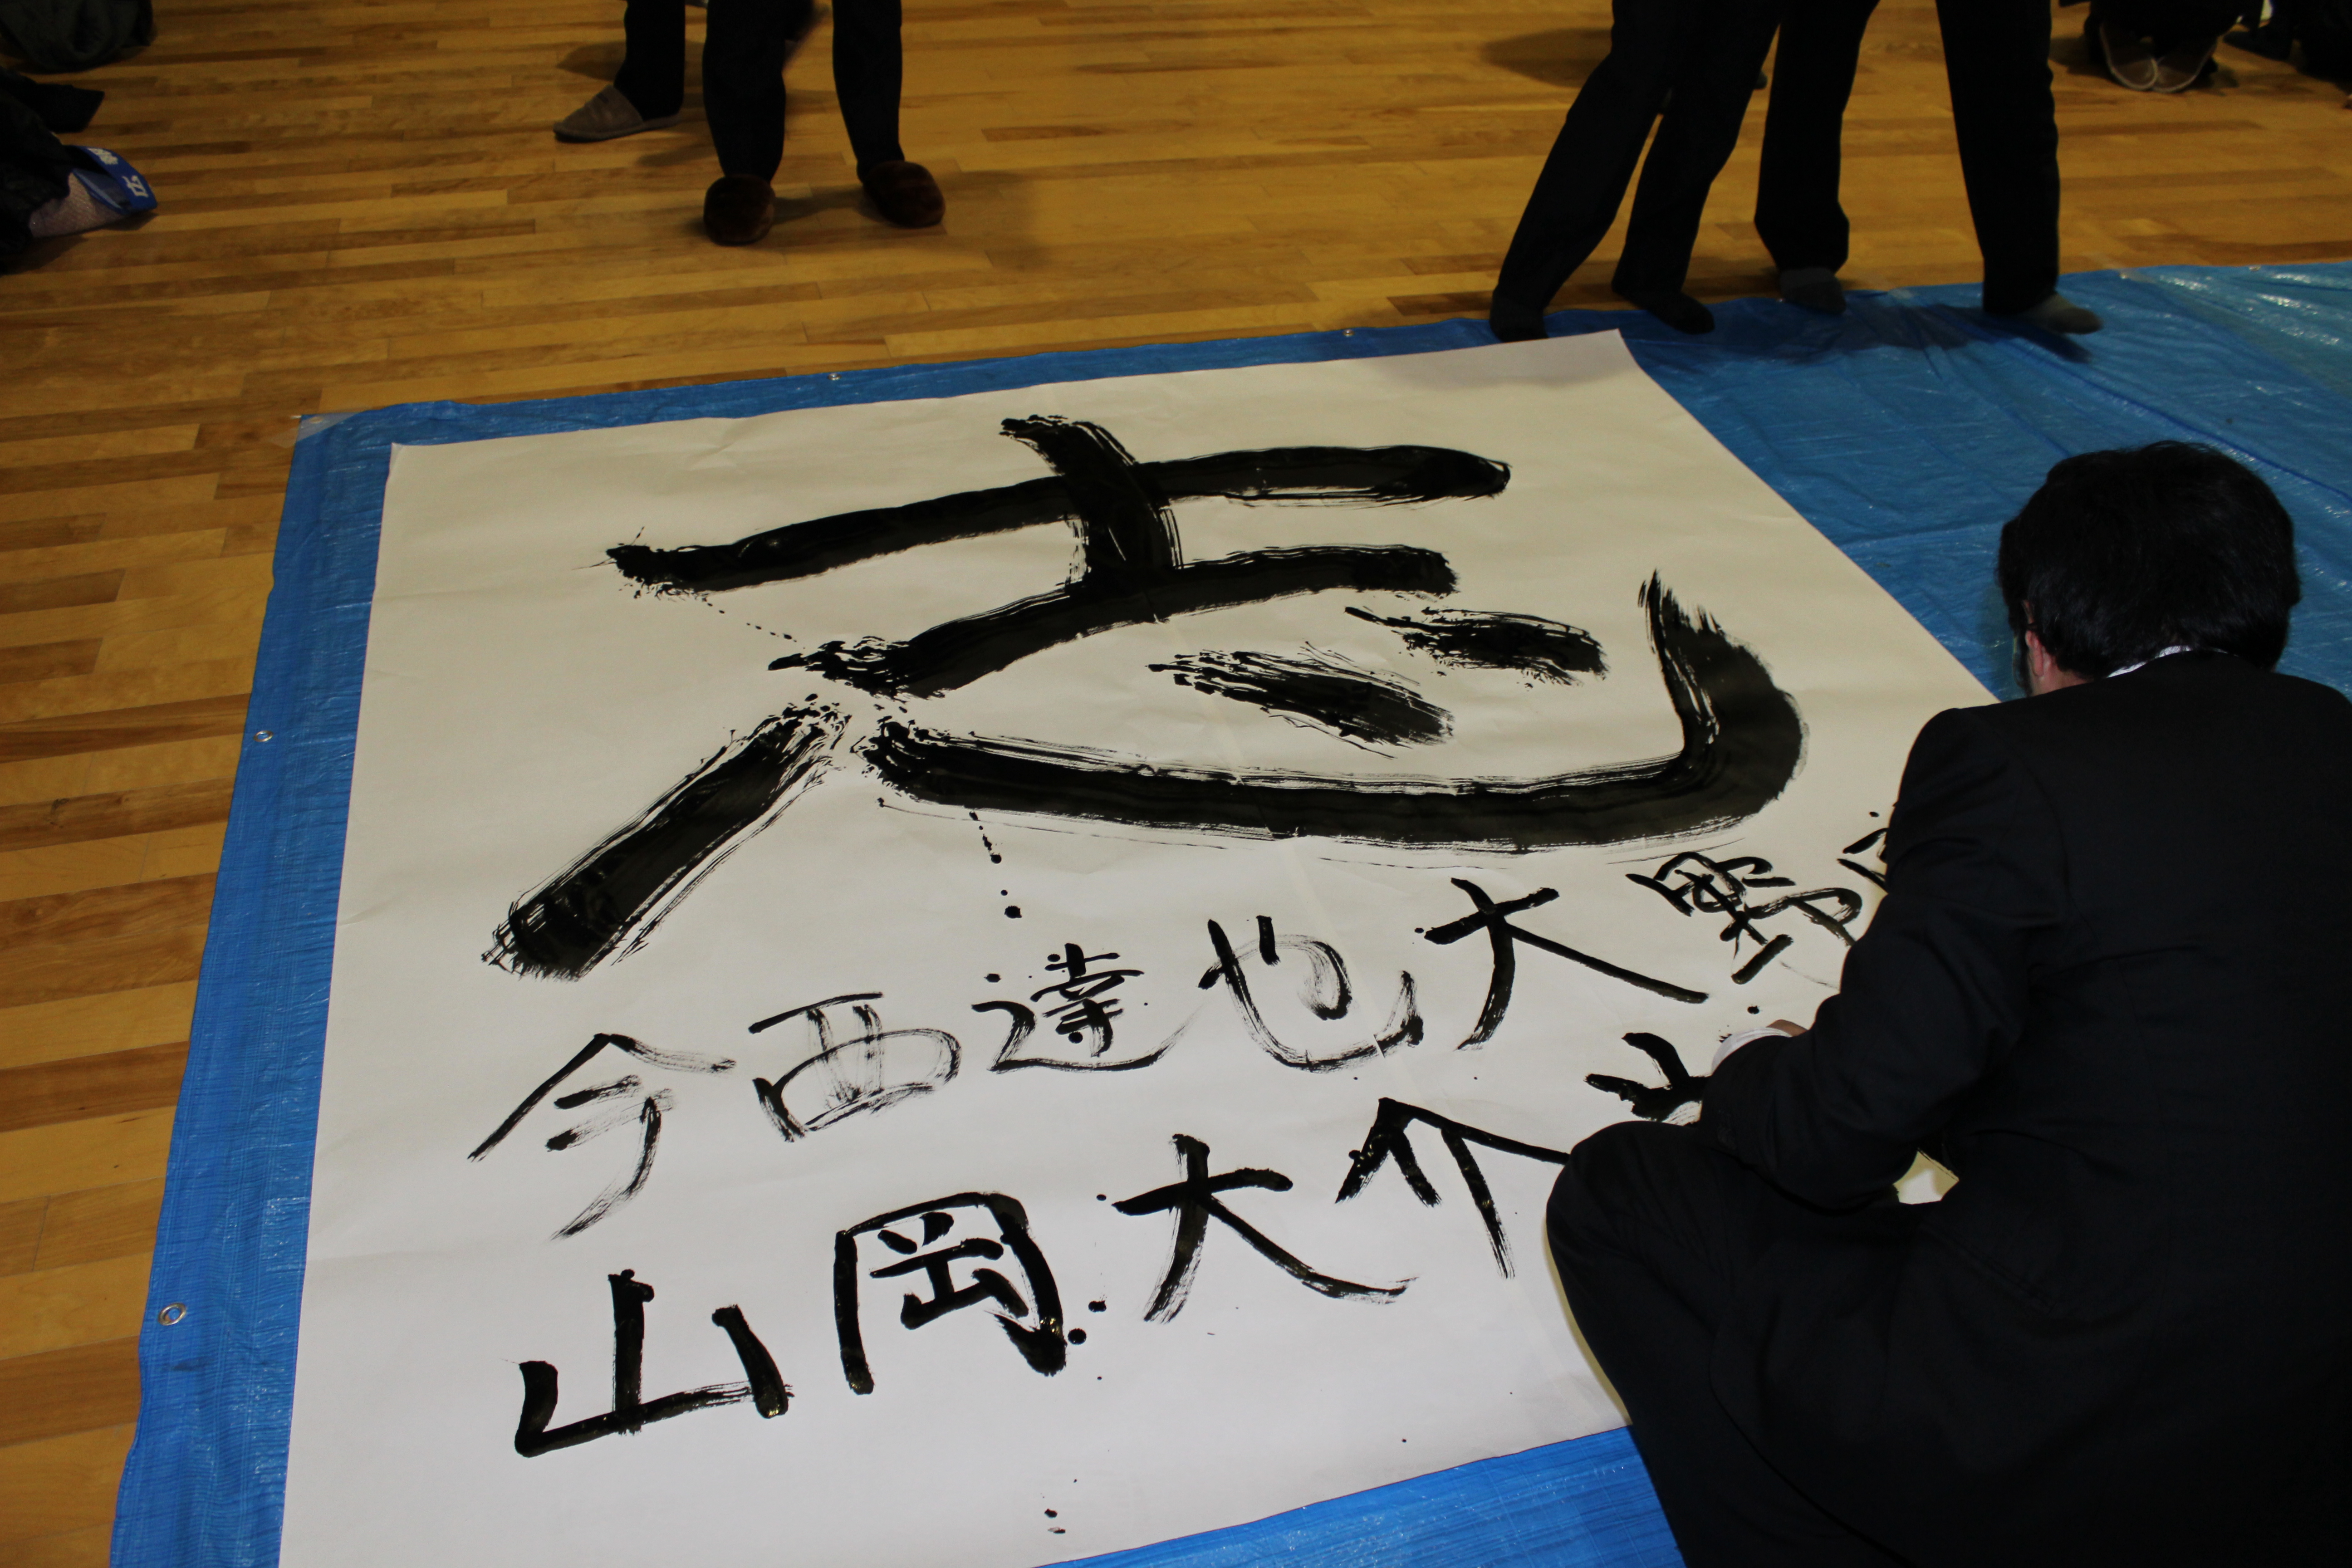 志
今西達也大野
山岡大介